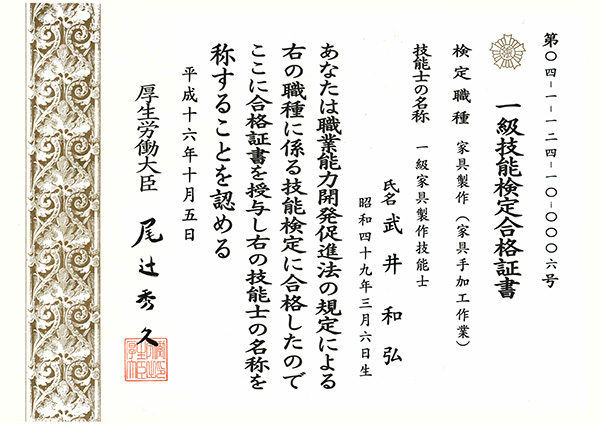 第〇四-一-一二四-一〇-〇〇〇六号
一級技能検定合格証書
検定職種 家具製作(家具手加工作業)
技能士の名称 一級家具製作技能士
氏名 武井 和弘
昭和四十九年三月六日生
あなたは職業能力開発促進法の規定による
右の職種に係る技能検定に合格したので
ここに合格証書を授与し右の技能士の名称を
称することを認める
平成十六年十月五日
厚生労働大臣 尾辻秀久